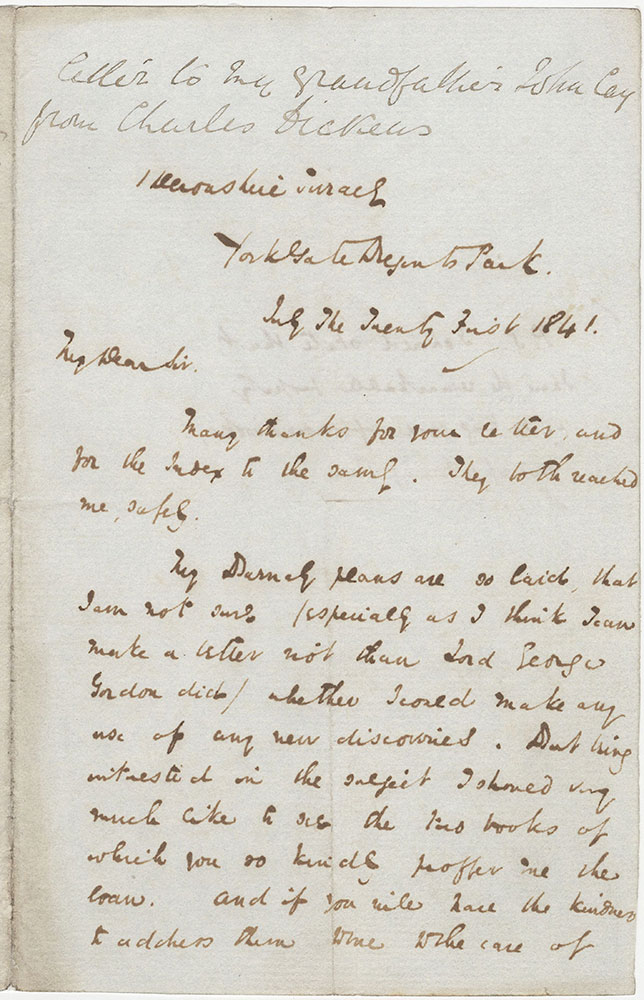 Letter to my grandfather John Cay
from Charles Dickens
1 Devonshire Terrace
York Gate Regents Park.
July The Twenty First 1841.
My Dear Sir.
Many thanks for your letter, and
for the Index to the same. They both reached
me, safely.
My Barnaby plans are so laid, that
I am not sure (especially as I think I can
make a better riot than Lord George
Gordon did) whether I could make any
use of any new discoveries. But being
interested in the subject I should very
much like to see the two books of
which you so kindly proffer me the
loan. And if you will have the kindness
to address them to me to the care of